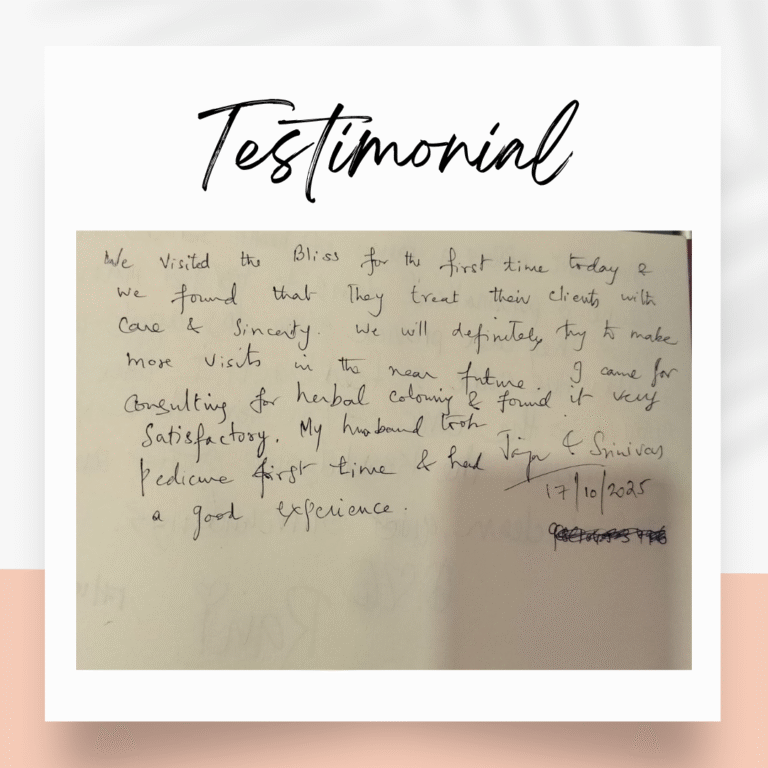 Testimonial
We visited the Bliss for the first time today &
we found that They treat their clients with
Care & Sincerity. We will definitely try to make
more visits in the near future. I came for
Consulting for herbal coloring & found it very
Satisfactory. My husband took
pedicure first time & had
a good experience.
& Srinivas
17/10/2025